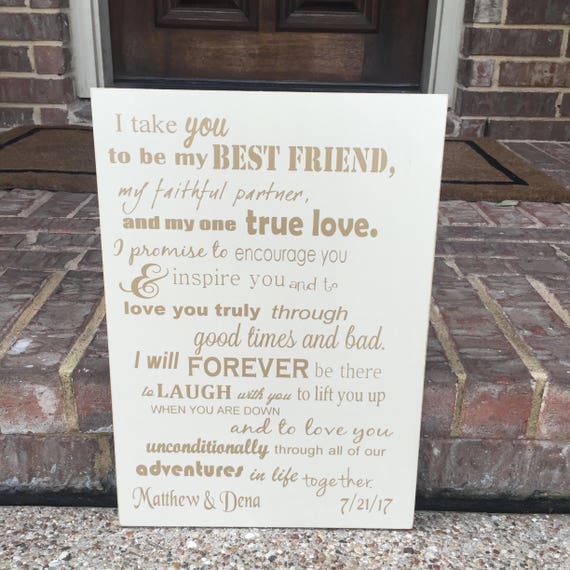 I take you
to be my BEST FRIEND,
my faithful partner,
and my one true love.
I promise to encourage you
& inspire you and to
love you truly through
good times and bad.
I will FOREVER be there
to LAUGH with you to lift you up
WHEN YOU ARE DOWN
and to love you
unconditionally through all of our
adventures in life together.
Matthew & Dena 7/21/17